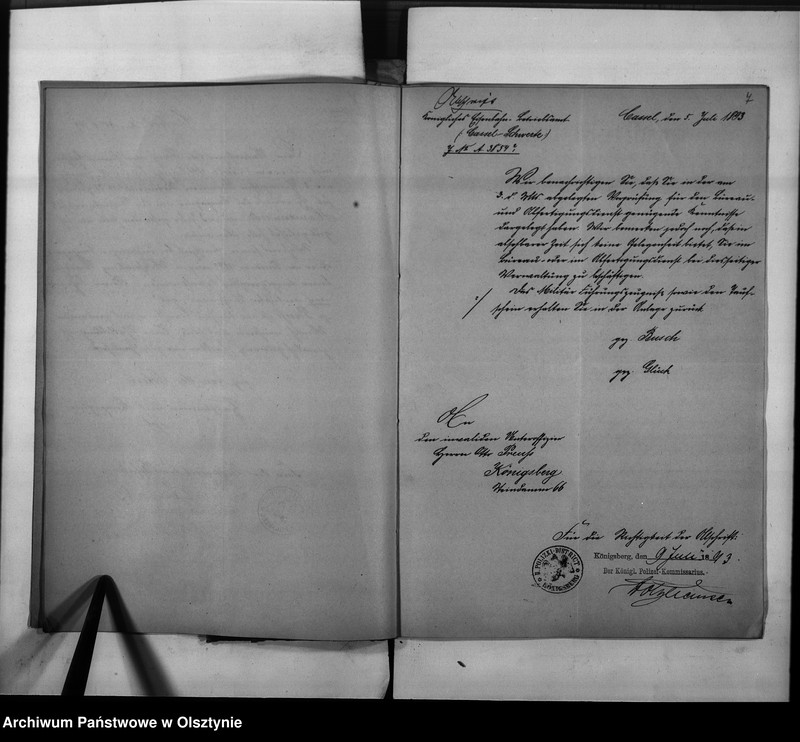 4
Abschrift
Königliches Eisenbahn-Betriebsamt
(Cassel-Schwerte)
J. No A 3854?
Cassel, den 5. Juli 1893
Wir benachrichtigen Sie, daß Sie in der am
3. d. Mts abgelegten Vorprüfung für den Büreau-
und Abfertigungsdienst genügende Kenntnisse
dargelegt haben. Wir bemerken jedoch noch, daß in
absehbarer Zeit sich keine Gelegenheit bietet, Sie im
Büreau- oder im Abfertigungsdienst der diesseitigen
Verwaltung zu beschäftigen.
Das Militär Führungszeugniß, sowie den Tauf-
schein erhalten Sie in der Anlage zurück
gez. Busch
gez.
An
den invaliden Unteroffizier
Herrn Otto Preuß
Königsberg
Steindamm 66
Für die Richtigkeit der Abschrift:
Königsberg, den 9 Juli 1893.
Der Königl. Polizei-Kommissarius.
POLIZEI-DISTRICT
KÖNIGSBERG
Archiwum Państwowe w Olsztynie